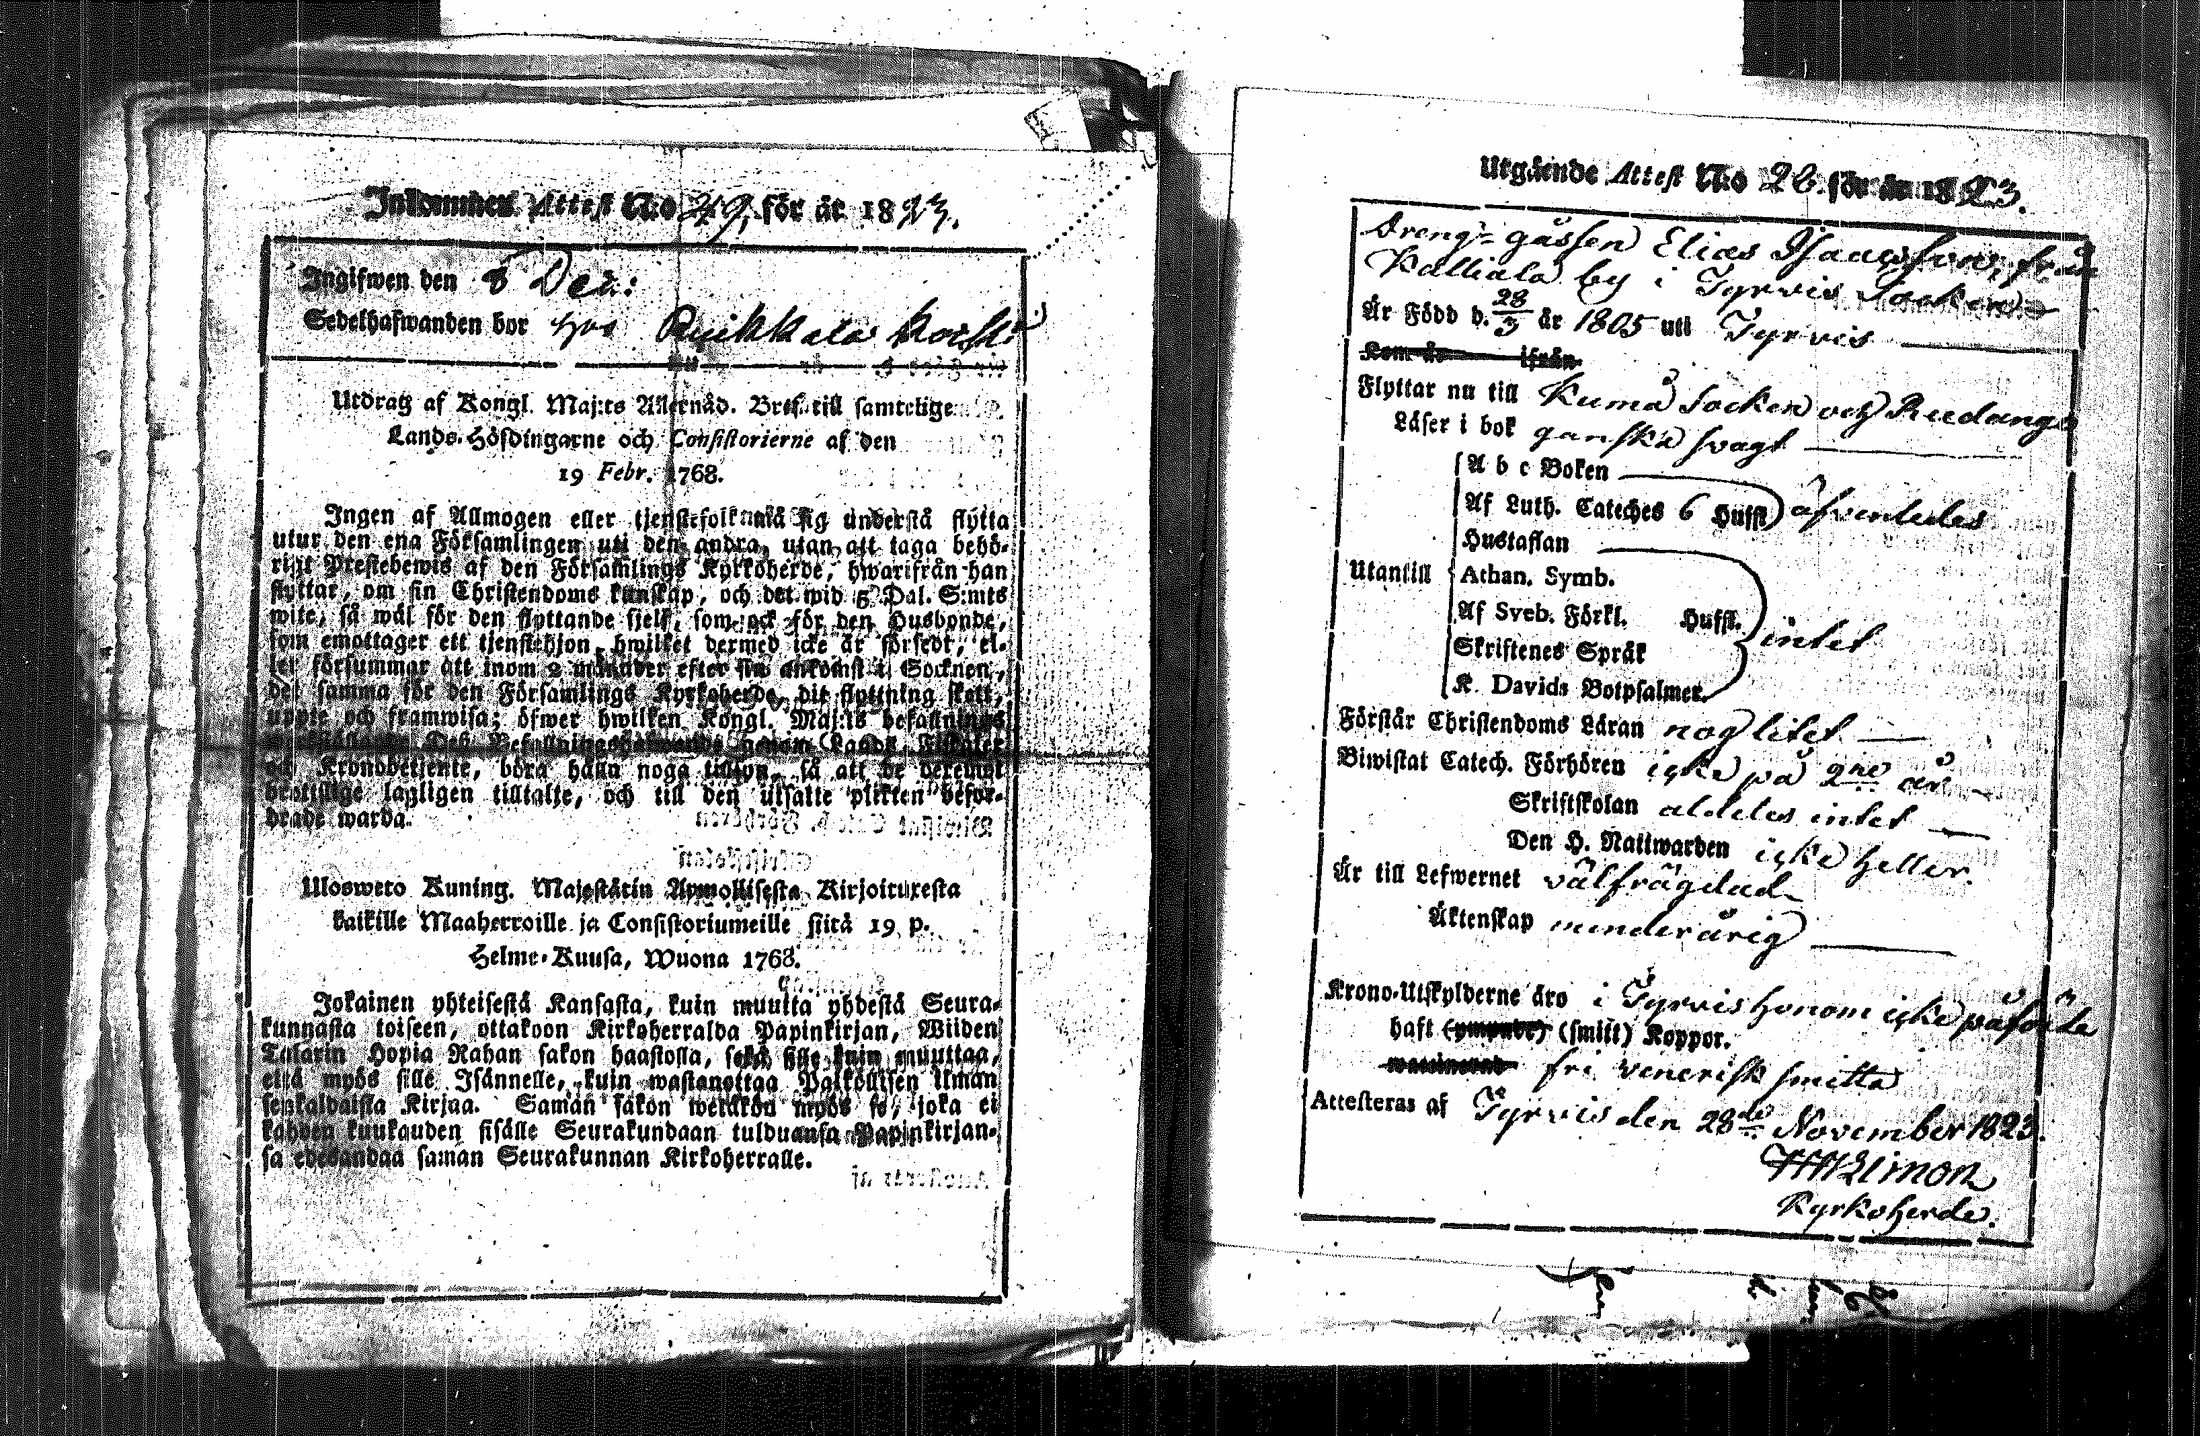 Inkommen Attest No 29, för år 1823.
Ingifwen den 8 Dec:
Sedelhafwanden bor hos
Utdrag af Kongl. Maj:ts Allernåd. Bref till samtelige
Lands-Höfdingarne och Consistorierne af den
19 Febr. 1768.
Ingen af Allmogen eller tjenstefolk må sig understå flytta
utur den ena Församlingen uti den andra, utan att taga behö-
rigt Prestebewis af den Församlings Kyrkoherde, hwarifrån han
flyttar, om sin Christendoms kunskap, och det wid 5 Dal. S:mts
wite, så wäl för den flyttande sjelf, som ock för den Husbonde,
som emottager ett tjenstehjon, hwilket dermed icke är försedt, el-
ler försummar att inom 2 månader efter sin ankomst i Socknen,
det samma för den Församlings Kyrkoherde, dit flyttning skett,
uppte och framwisa; öfwer hwilken Kongl. Maj:ts befallnings
Des Befallningshafwande genom Lands-Fiskaler
och Kronobetjente, böra hålla noga tillsyn, så att de deremot
brottslige lagligen tilltalte, och till den utsatte plikten befor-
drade warda.
Ulosweto Kuning. Majestätin Armollisesta Kirjoituxesta
kaikille Maaherroille ja Consistoriumeille siitä 19 p.
Helme-Kuusa, Wuona 1768.
Jokainen yhteisestä Kansasta, kuin muutta yhdestä Seura-
kunnasta toiseen, ottakoon Kirkoherralda Papinkirjan, Wiiden
Talarin Hopia Rahan sakon haastolla, sekä sille kuin muuttaa,
että myös sille Isännelle, kuin wastanottaa Palkollisen ilman
senkaldaista Kirjaa. Saman sakon wetäkön myös se, joka ei
kahden kuukauden sisälle Seurakundaan tulduansa Papinkirjan-
sa edesandaa saman Seurakunnan Kirkoherralle.
Utgående Attest No 26 för år 1823.
Dreng-gåssen Elias Isaacsson, från
Kalliala by i Tyrvis Socken
Är Född d. 28/3 år 1805 uti Tyrvis
Kom år ifrån
Flyttar nu till Kumå Socken och
Läser i bok ganska svagt
A b c Boken
Af Luth. Cateches 6 Hufst. åfvenledes
Hustaflan
Utantill Athan. Symb.
Af Sveb. Förkl. Hufst. intet
Skriftenes Språk
K. Davids Botpsalmer.
Förstår Christendoms Läran nog litet
Biwistat Catech. Förhören icke på 2ne år
Skriftskolan aldeles intet
Den H. Nattwarden icke heller.
Är till Lefwernet välfrägdad
Äktenskap minderårig
Krono-Utskylderne äro i Tyrvis honom icke påförde
haft (ympade) (smitt) Koppor.
fri venerisk smitta
Attesteras af Tyrvis den 28de November 1823.
Kyrkoherde.